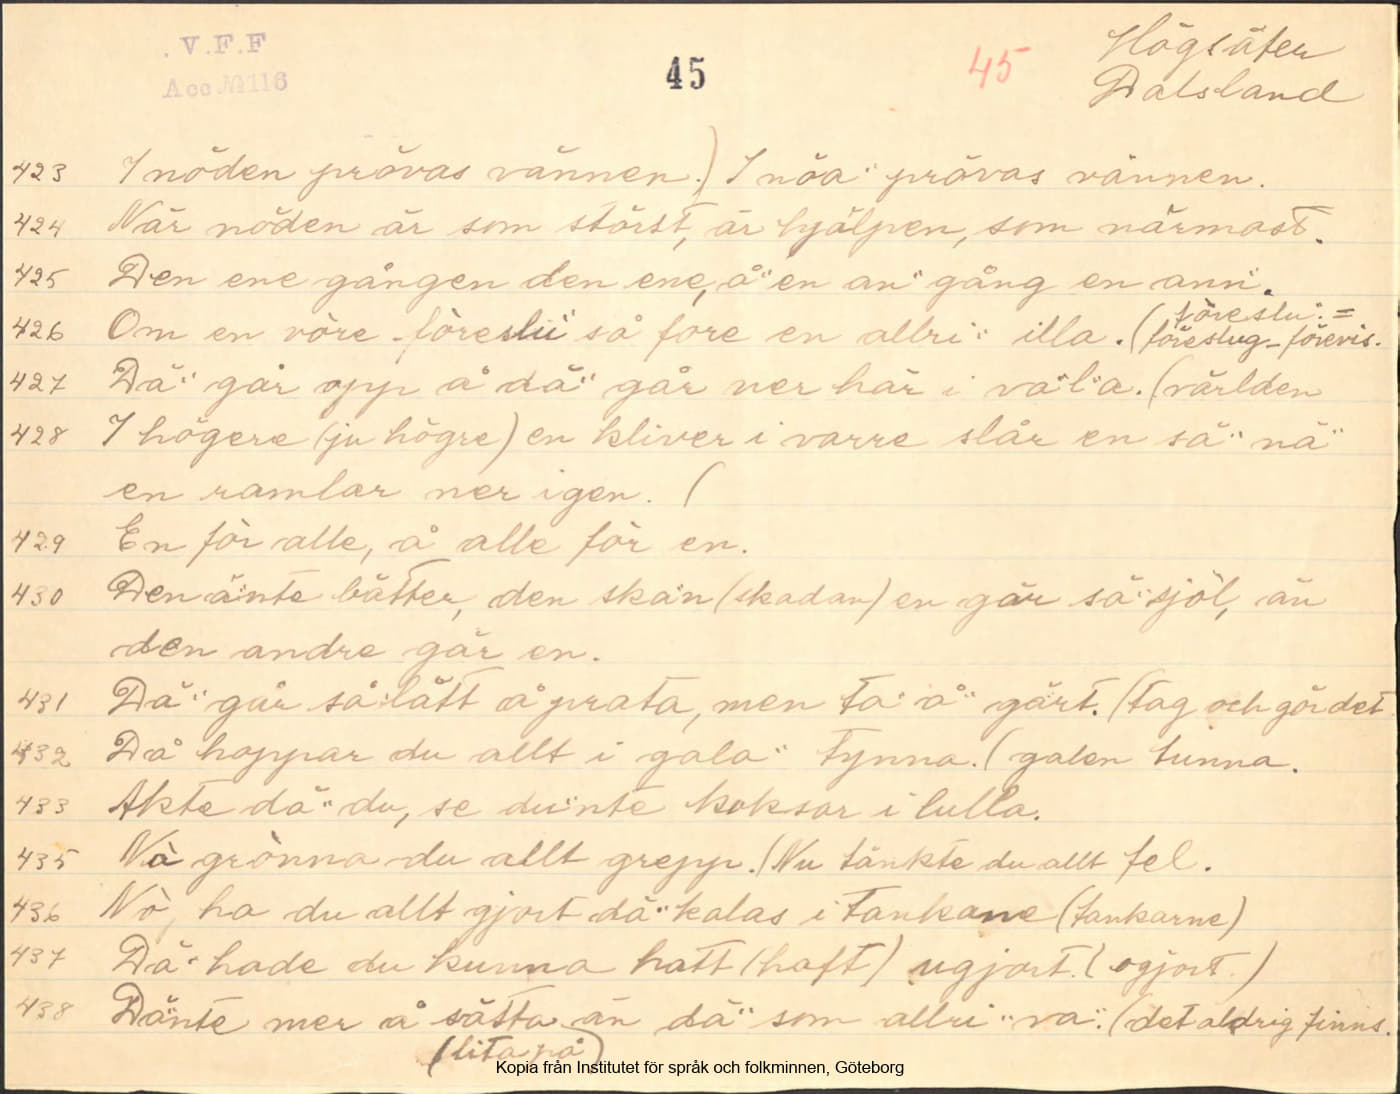 V.F.F
Acc.№116
45
45
Högsäter
Dalsland
423 I nöden prövas vännen.) I nöa¨ prövas vännen.
424 När nöden är som störst, är hjälpen, som närmast.
425 Den ene gången den ene, å¨ en an¨ gång en ann¨.
426 Om en vöre föreslu¨ så fore en allri¨ illa. (föreslu¨ =
föreslug - förevis.
427 Dä¨ går opp å dä¨ går ner här i va¨l¨a. (världen
428 I högere (ju högre) en kliver i varre slår en sä¨ nä¨
en ramlar ner igen. (
429 En för alle, å alle för en.
430 Den ä¨nte bätter, den ska¨n (skadan) en gär sä¨ sjöl, än
den andre gär en.
431 Dä¨ går så¨ lätt å prata, men ta¨ å¨ gärt. (tag och gör det
432 Då hoppar du allt i gala¨ tynna. (galen tunna.
433 Akte dä¨ du, se du¨nte koksar i lulla.
435 Nò grònna du allt grepp. (Nu tänkte du allt fel.
436 Nò, ha du allt gjort dä¨ kalas i tankane (tankarne)
437 Dä¨ hade du kunna hatt (haft) ugjort. (ogjort.)
438 Dä¨nte mer å sätta än dä¨ som allri¨ va¨. (det aldrig finns.
(lita på)
Kopia från Institutet för språk och folkminnen, Göteborg